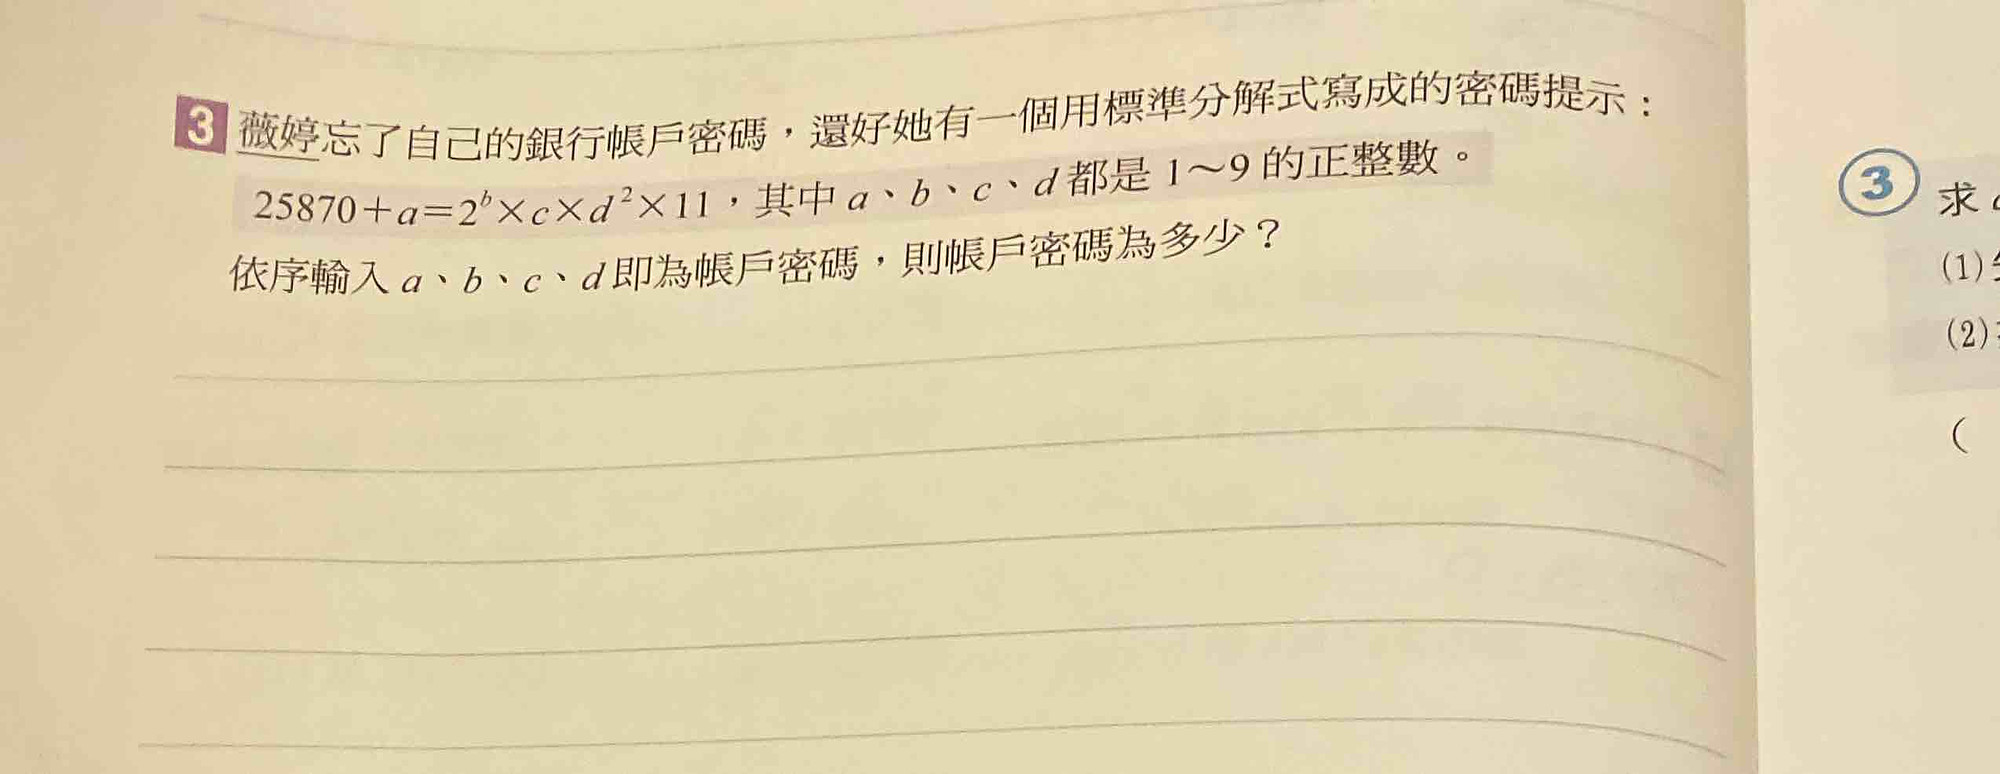 3 薇婷忘了自己的銀行帳戶密碼，還好她有一個用標準分解式寫成的密碼提示：
25870＋a＝2ᵇ×c×d²×11，其中 a、b、c、d 都是 1～9 的正整數。
依序輸入 a、b、c、d 即為帳戶密碼，則帳戶密碼為多少？
③ 求
(1)
(2)
(